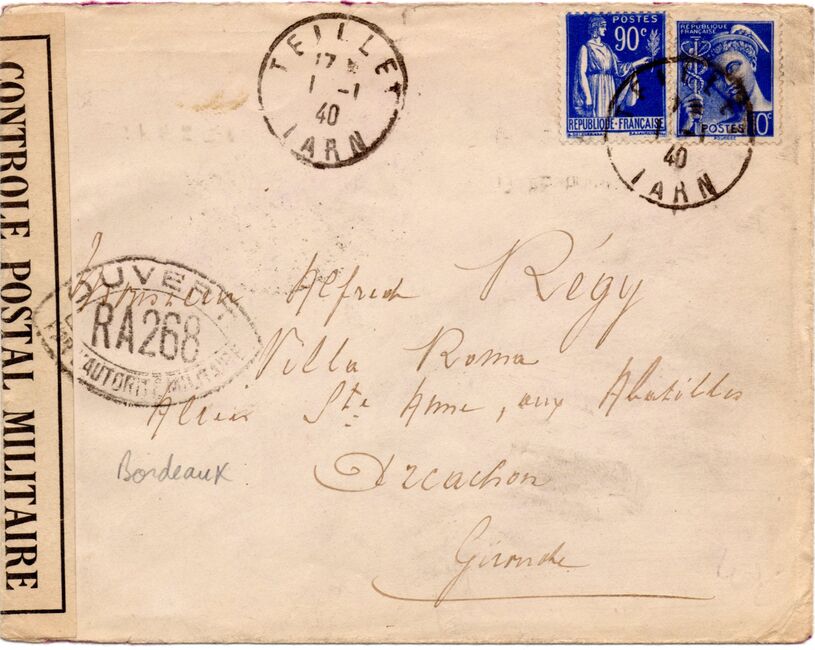 CONTROLE POSTAL MILITAIRE
TEILLET
17
1 -1
40
TARN
POSTES
90c
RÉPUBLIQUE-FRANÇAISE
RÉPUBLIQUE
FRANÇAISE
POSTES
10c
TEILLET
40
TARN
OUVERT
RA268
PAR L'AUTORITÉ MILITAIRE
Monsieur Alfred Régy
Villa Roma
Allée Ste Anne, aux Abatilles
Arcachon
Gironde
Bordeaux